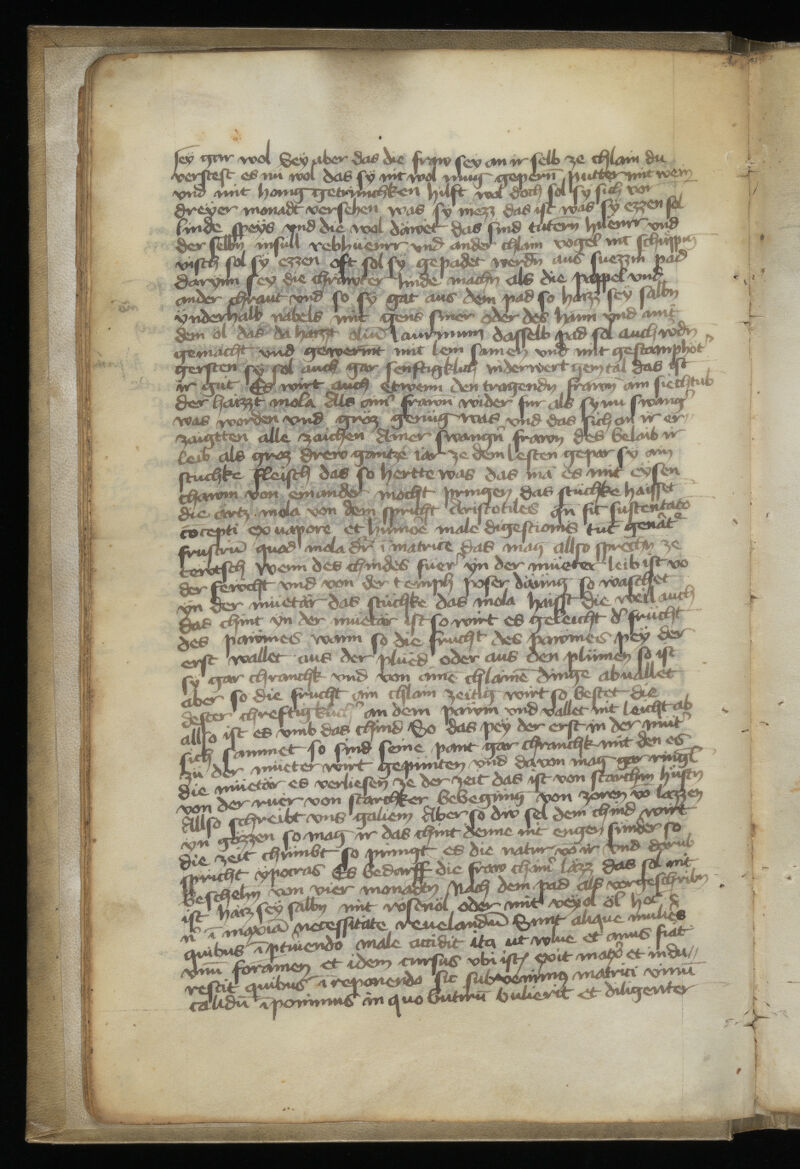 sey gar wol Sey aber das die fraw sey an ir selb ze chlain du
verstest es nu wol das sy nit wol mug gepern putter mit wein
vnd mit honig getrunchken hilft wol doch sol sy sich vor
dreyer monadt versehen was sy niezz das ist was sy ezzen sol
linde speys vnd die wol dawet das sind tutern huener vnd
der selbn rebhuenrr vnd ander chlain vogel mit schuppn
visch sol sy ezzen oft sol sy gepadet werdn aus suezzm pad
darynn sey die chrawter linde machn als die pappel vnd
ander chraut vnd so sy gat aus dem pad so haizz sey salbn
vnderhalb nabels mit gens smer oder des hann vnd mit
dem ol das da haizt laurinum dasselb pad sol auch wdn
gemacht vnd gewermt mit lein samen vnd mit gestamphot
gersten sy sol auch gar senftigklich das ist
ir gut Es wirt auch etwenn den tragendn frawn ain siechtub
der haizzt mola Als ainr frawn wider fur als symi swangr
was worden vnd groz genug was vnd das sich an ir er
zaigtten alle zaichen ainer swangn frawn des belaib ir
leib als groz drew gantze iar ze dem lesten gepar sy ain
stuchke fleisch das so hertte was das mā es mit eysen
chawm von einander mocht pringen das stuchke haisset
die artz mola von dem spricht Aristotiles qn fit sustentatō
cōcepti ex vapore et humōe male digestionis tūc genātr
frustrū quod mola dr ī matrice das mag allso sprechn ze
tewtsch wenn des chindes fuer yn der mueter leib ist vō
der fewcht vnd von der temph poser dawng so waschet
yn der muetar das stuchke das mola haisst die weil auch
das chint yn der muetar ist so wirt es geleicht dr frucht
des pawmes wann so die frucht des pawmes pey der
erst wallet aus der plued oder aus den plumen so ist
sy gar chranchk vnd von aime chlaine dinge abvallet
aber so die frucht ain chlain zeitig wirt so bestet die
dester chreftigklich an dem pawm vnd vallet nit leicht ab
allso ist es vmb das chind So das pey der erst in der mutr
sich sammet so sind seine pant gar chranchk mit den es
zu der mueter wirt gepunten vnd davon mag gar ringl
die muetar es verliesen ze der zeit das ist von starchm husten
von der ruer von starchker bebegung von zoren vō lazzen
Allso schreibt vns galiem Aber so diw sel dem chind wirt
yn gozzen so mag ir das chint denne nit engen sunder so
die zeit chumbt so pringt es die natur vō ir vnd darub
spricht ypocras Es bedarff die fraw chainr lazz das sol nit
beschehn von vier monaden Nach dem pad als vorgeschribn
ist haiz sey salbn mit rosenol oder mit veyol ol
necessitate reuelandū Sunt alique mulies
quibus male accidit ita ut wlue et anus fiat
vnū foramen et idem cursus vbi ist exit mat et indu
rescit quibus ī reponendo sic subvenimus matrici vinū
calidū īponimus in quo butirū bulierit et diligenter